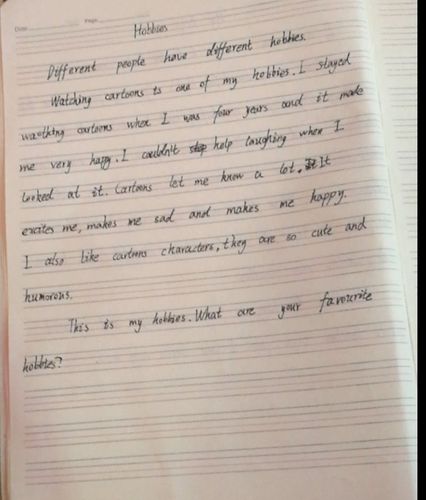 Date Page
Hobbies
Different people have different hobbies.
Watching cartoons is one of my hobbies. I stayed
wacthing cartoons when I was four years and it made
me very happy. I couldn't help laughing when I
looked at it. Cartoons let me know a lot. It
excites me, makes me sad and makes me happy.
I also like cartoons characters, they are so cute and
humorous.
This is my hobbies. What are your favourite
hobbies?